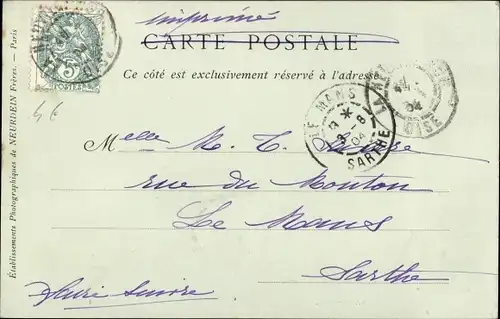 imprimé
CARTE POSTALE
Ce côté est exclusivement réservé à l'adresse
5
POSTES
46
LE MANS
* 
8-8
04
SARTHE
04
OISE
Melle M. T.
rue du Mouton
Le Mans
Sarthe
faire suivre
Établissements Photographiques de NEURDEIN Frères. — Paris